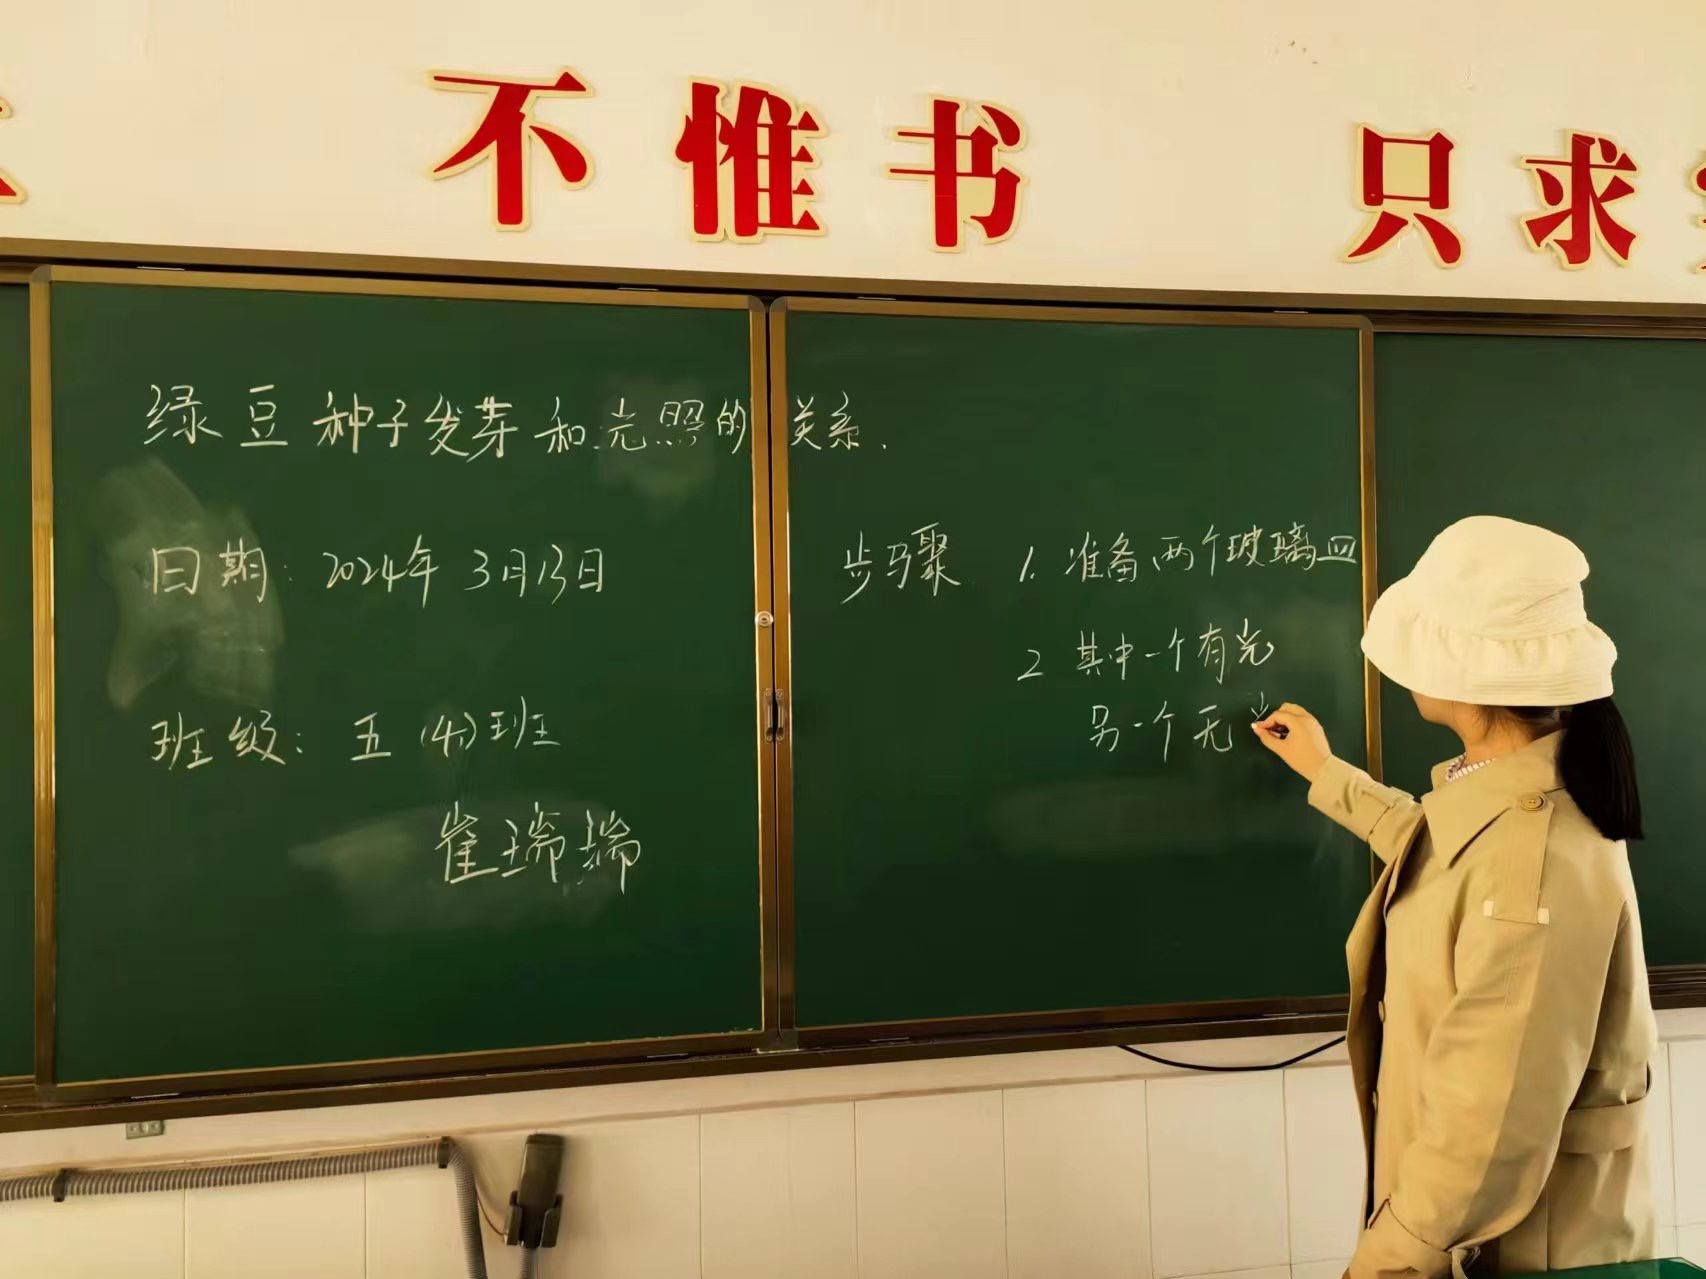 不惟书 只求
绿豆种子发芽和光照的关系.
日期: 2024年 3月13日
班级: 五(4)班
崔瑞瑞
步骤 1. 准备两个玻璃皿
2 其中一个有光
另一个无